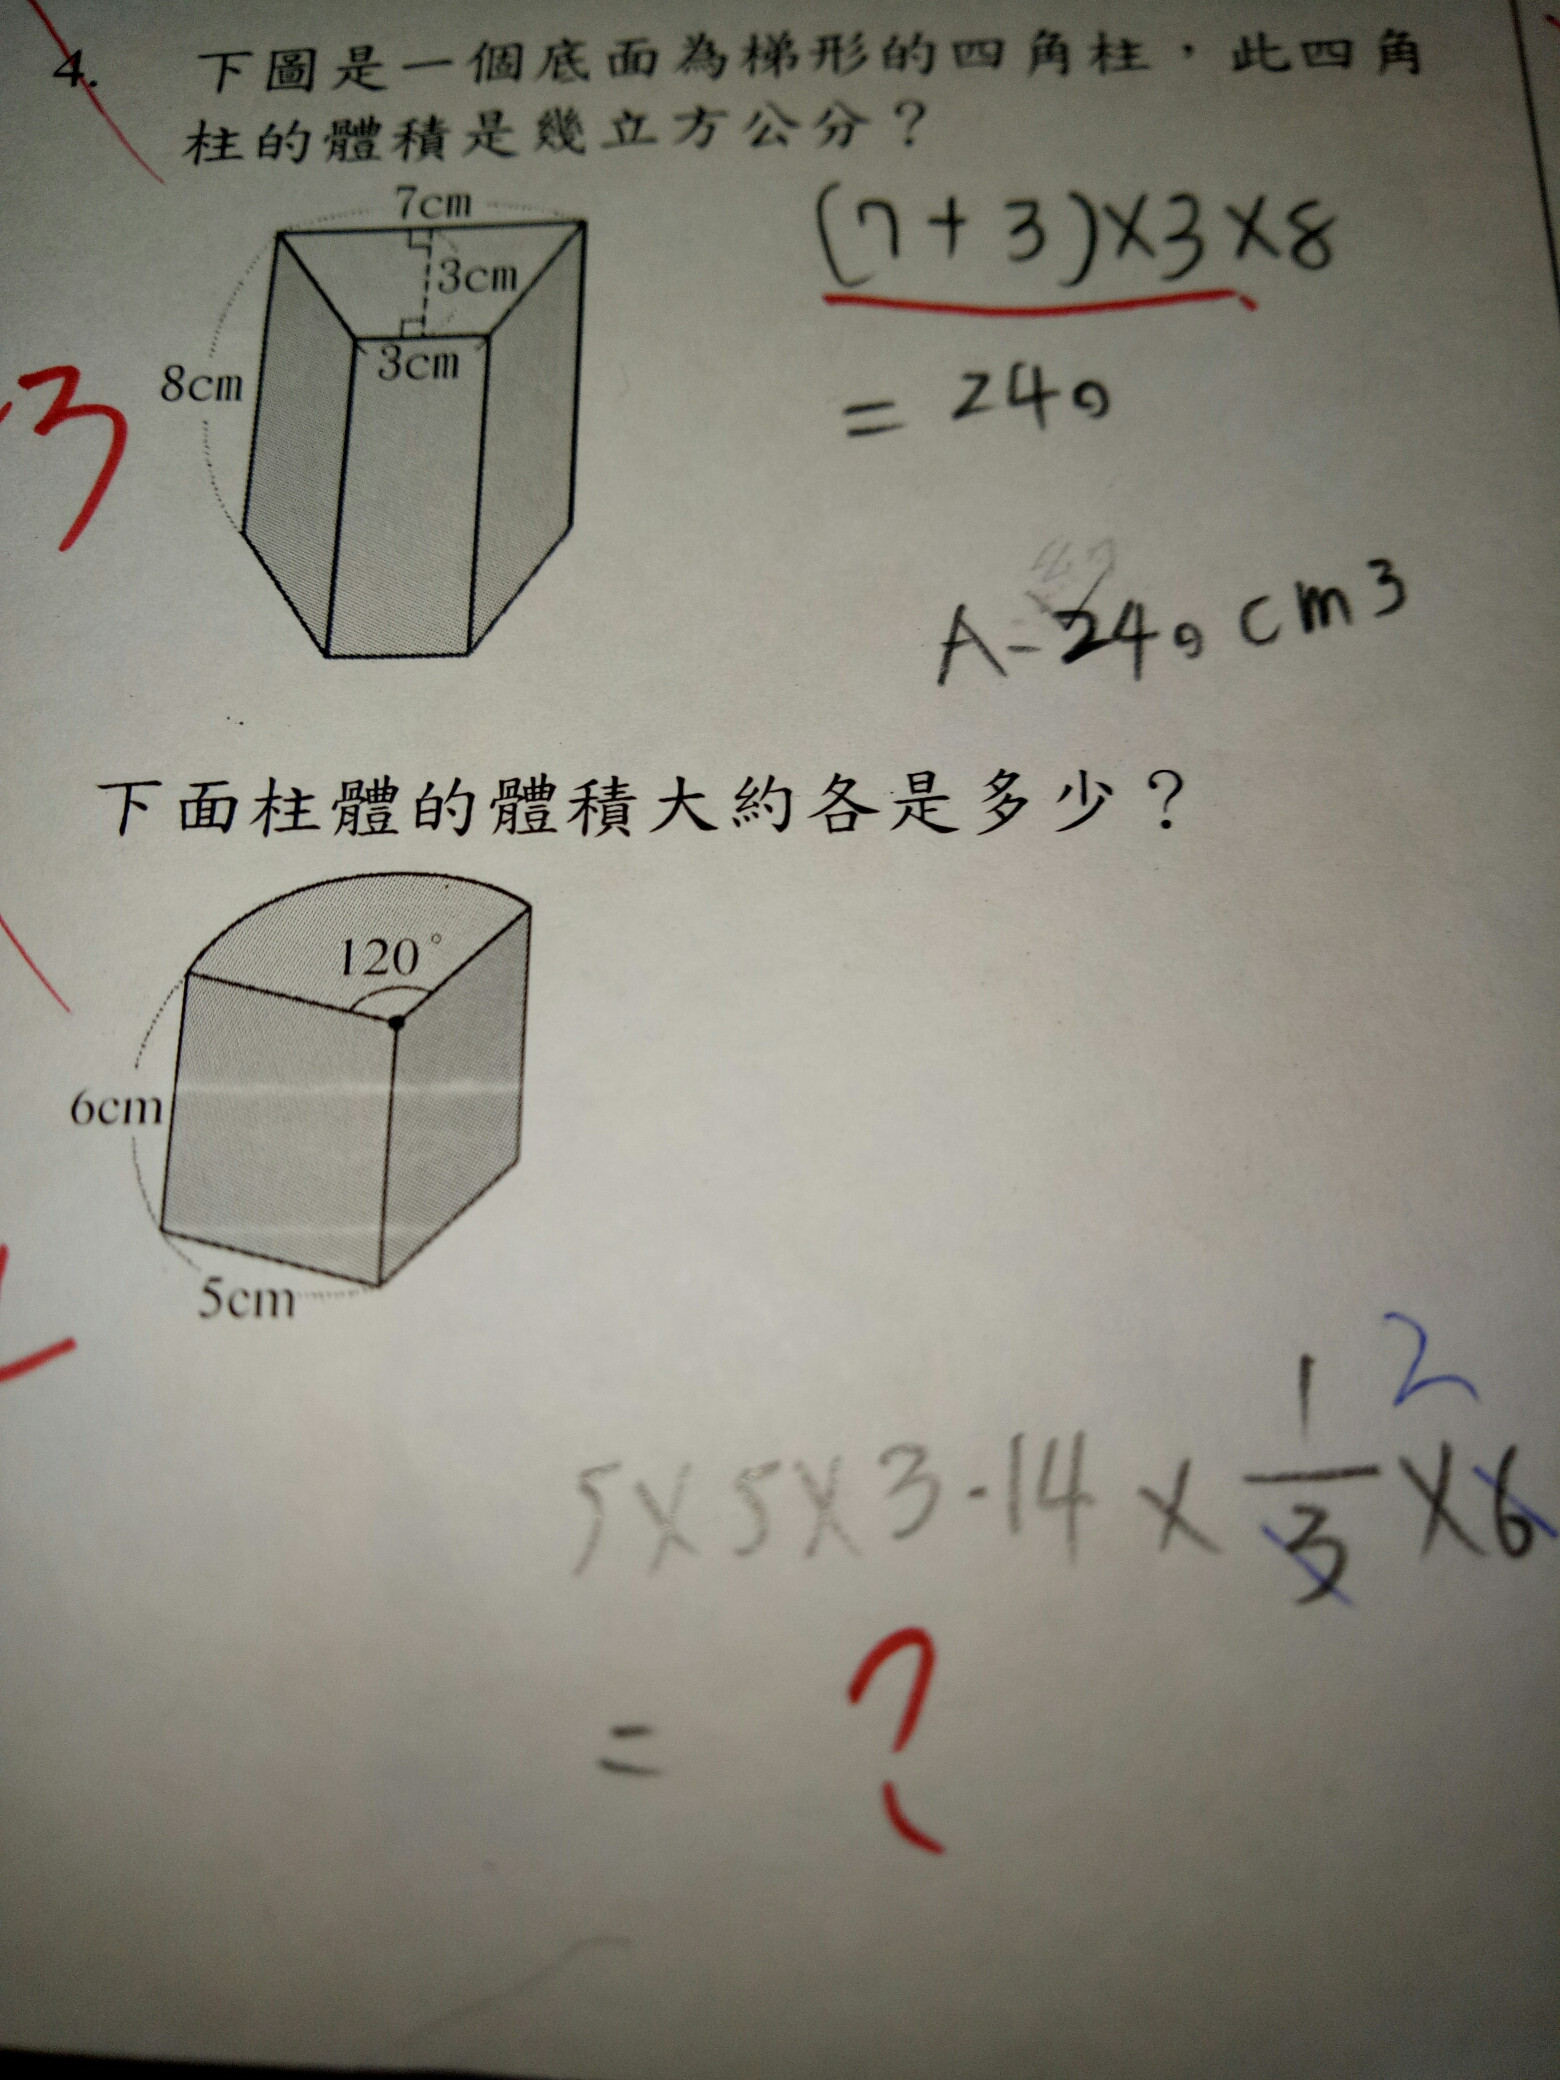 4. 下圖是一個底面為梯形的四角柱，此四角
柱的體積是幾立方公分？
7cm
3cm
3cm
8cm
(7+3)×3×8
= 240
A-240cm3
3
下面柱體的體積大約各是多少？
120°
6cm
5cm
2
5×5×3.14×1/3×6
= ?